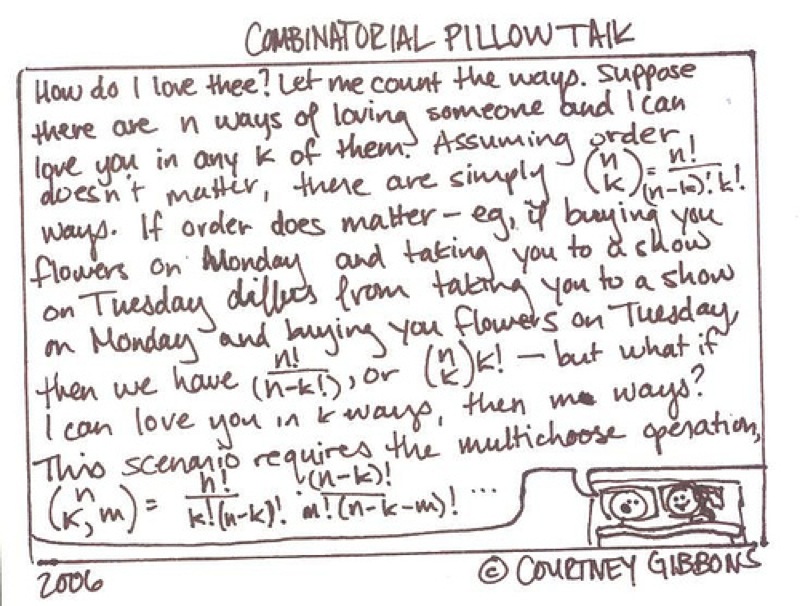 COMBINATORIAL PILLOW TALK
How do I love thee? Let me count the ways. Suppose
there are n ways of loving someone and I can
love you in any k of them. Assuming order
doesn't matter, there are simply (n k) = n!/(n-k)!k!
ways. If order does matter - eg, if buying you
flowers on Monday and taking you to a show
on Tuesday differs from taking you to a show
on Monday and buying you flowers on Tuesday,
then we have n!/(n-k!), or (n k)k! - but what if
I can love you in k ways, then m ways?
This scenario requires the multichoose operation,
(n k,m) = n!/k!(n-k)! · (n-k)!/m!(n-k-m)! ...
2006
© COURTNEY GIBBONS